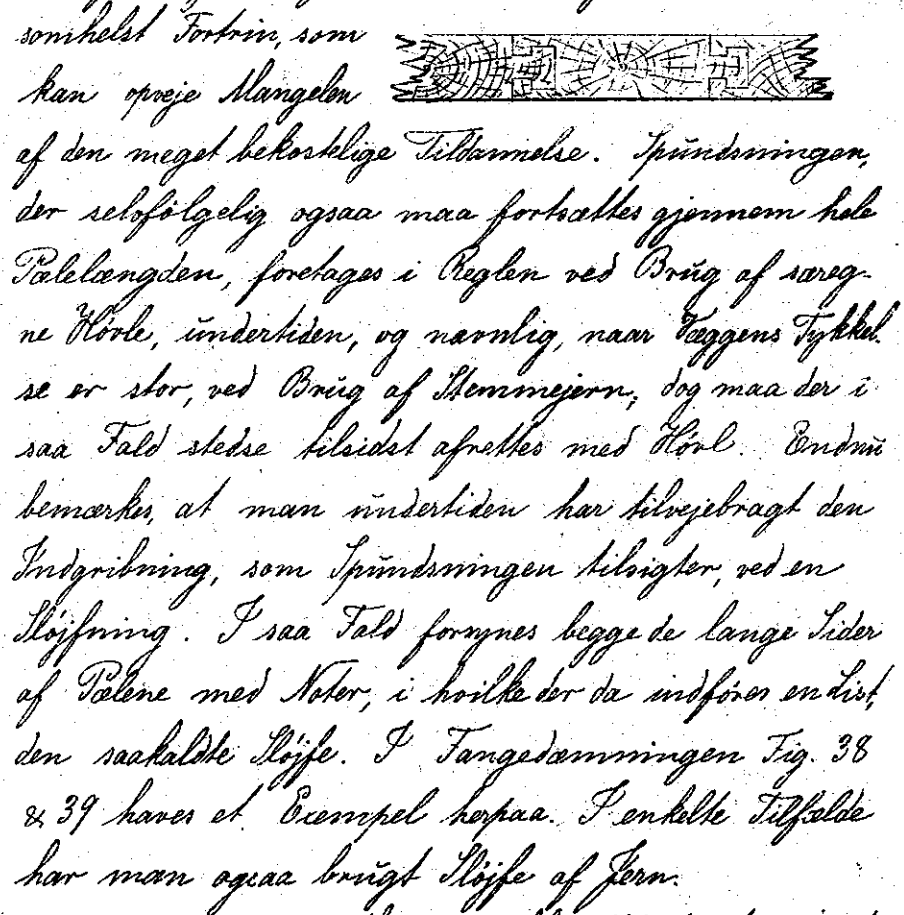 somhelst Fortrin, som
kan opveje Mangelen
af den meget bekostelige Tildannelse. Spundsningen,
der selvfølgelig ogsaa maa fortsættes gjennem hele
Pælelængden, foretages i Reglen ved Brug af særeg-
ne Høvle, undertiden, og navnlig, naar Væggens Tykkel-
se er stor, ved Brug af Stemmejern; dog maa der i
saa Fald stedse tilsidst afrettes med Høvl. Endnu
bemærkes, at man undertiden har tilvejebragt den
Indgribning, som Spundsningen tilsigter, ved en
Sløjfning. I saa Fald forsynes begge de lange Sider
af Pælene med Noter, i hvilke der da indføres en List,
den saakaldte Sløjfe. I Fangedæmningen Fig. 38
& 39 haves et Exempel herpaa. I enkelte Tilfælde
har man ogsaa brugt Sløjfe af Jern.